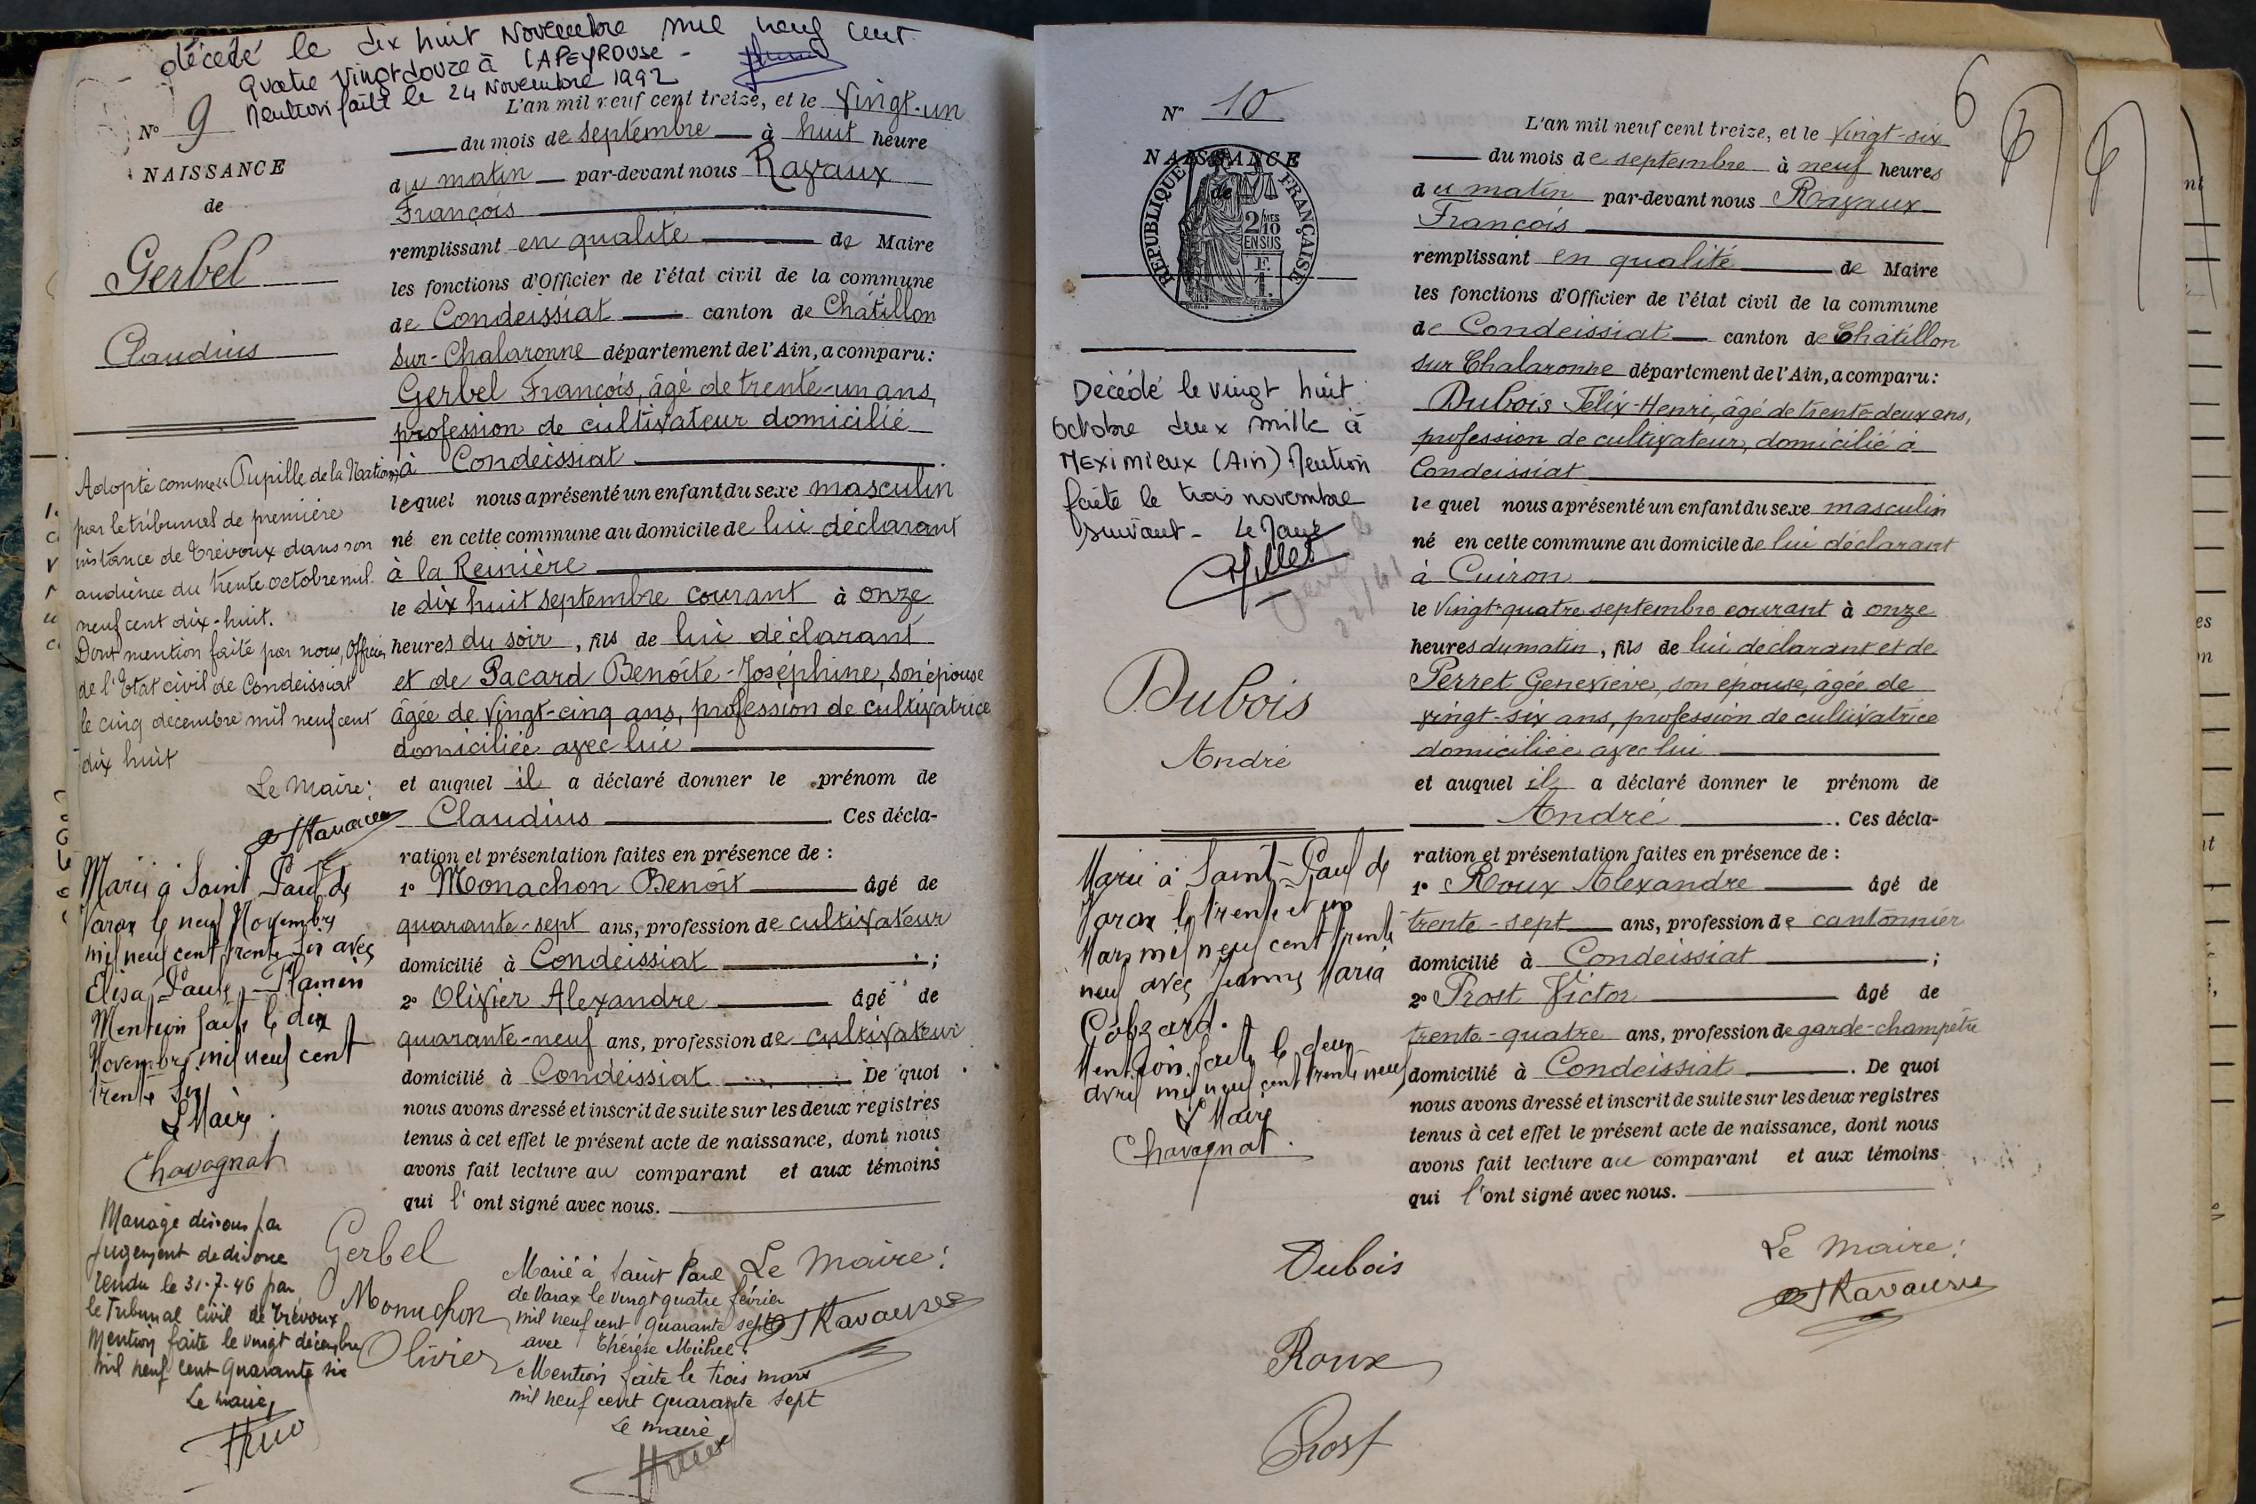 décédé le dix huit Novembre mil neuf cent
Quatre Vingt douze à LAPEYROUSE -
Mention faite le 24 Novembre 1992
N° 9
NAISSANCE
de
Gerbel
Claudius
Adopté comme "Pupille de la Nation"
par le tribunal de première
instance de Trévoux dans son
audience du trente octobre mil
neuf cent dix-huit.
Dont mention faite par nous, Officier
de l'Etat civil de Condeissiat
le cinq décembre mil neuf cent
dix huit
Le Maire:
Marié à Saint Paul de
Varax le neuf Novembre
mil neuf cent trente six avec
Elisa Paule Flamin
Mention faite le dix
Novembre mil neuf cent
trente six
Le Maire
Chavagnat
Mariage dissous par
jugement de divorce
rendu le 31-7-46 par
le Tribunal Civil de Trévoux
Mention faite le vingt décembre
mil neuf cent quarante six
Le maire,
L'an mil neuf cent treize, et le Vingt-un
du mois de septembre à huit heure
du matin par-devant nous Ravaux
François
remplissant en qualité de Maire
les fonctions d'Officier de l'état civil de la commune
de Condeissiat canton de Châtillon
sur-Chalaronne département de l'Ain, a comparu:
Gerbel François, âgé de trente-un ans,
profession de cultivateur domicilié
à Condeissiat
lequel nous a présenté un enfant du sexe masculin
né en cette commune au domicile de lui déclarant
à la Reinière
le dix huit septembre courant à onze
heures du soir, fils de lui déclarant
et de Pacard Benoîte-Joséphine, son épouse
âgée de Vingt-cinq ans, profession de cultivatrice
domiciliée avec lui
et auquel il a déclaré donner le prénom de
Claudius Ces décla-
ration et présentation faites en présence de :
1° Monachon Benoît âgé de
quarante-sept ans, profession de cultivateur
domicilié à Condeissiat ;
2° Olivier Alexandre âgé de
quarante-neuf ans, profession de cultivateur
domicilié à Condeissiat De quoi
nous avons dressé et inscrit de suite sur les deux registres
tenus à cet effet le présent acte de naissance, dont nous
avons fait lecture au comparant et aux témoins
qui l'ont signé avec nous.
Gerbel
Monachon
Olivier
Le Maire:
Ravaux
Marié à Saint Paul
de Varax le vingt quatre février
mil neuf cent quarante sept
avec Thérèse Michel.
Mention faite le trois mars
mil neuf cent quarante sept
Le maire
6
N° 10
NAISSANCE
de
RÉPUBLIQUE FRANÇAISE
2/10MES
EN SUS
F.
1.
Décédé le vingt huit
octobre deux mille à
MEXIMIEUX (Ain) Mention
faite le trois novembre
suivant - Le Maire
Dubois
André
Marié à Saint-Paul de
Varax le trente et un
Mars mil neuf cent trente
neuf avec Jeanne Maria
Mention faite le deux
avril mil neuf cent trente neuf
Le Maire
Chavagnat
L'an mil neuf cent treize, et le Vingt-six
du mois de septembre à neuf heures
du matin par-devant nous Ravaux
François
remplissant en qualité de Maire
les fonctions d'Officier de l'état civil de la commune
de Condeissiat canton de Châtillon
sur Chalaronne département de l'Ain, a comparu:
Dubois Félix-Henri, âgé de trente-deux ans,
profession de cultivateur, domicilié à
Condeissiat
lequel nous a présenté un enfant du sexe masculin
né en cette commune au domicile de lui déclarant
à Cuiron
le Vingt-quatre septembre courant à onze
heures du matin, fils de lui déclarant et de
Perret Geneviève, son épouse, âgée de
vingt-six ans, profession de cultivatrice
domiciliée avec lui
et auquel il a déclaré donner le prénom de
André. Ces décla-
ration et présentation faites en présence de :
1° Roux Alexandre âgé de
trente-sept ans, profession de cantonnier
domicilié à Condeissiat ;
2° Prost Victor âgé de
trente-quatre ans, profession de garde-champêtre
domicilié à Condeissiat. De quoi
nous avons dressé et inscrit de suite sur les deux registres
tenus à cet effet le présent acte de naissance, dont nous
avons fait lecture au comparant et aux témoins
qui l'ont signé avec nous.
Dubois
Le Maire:
Ravaux
Roux
Prost